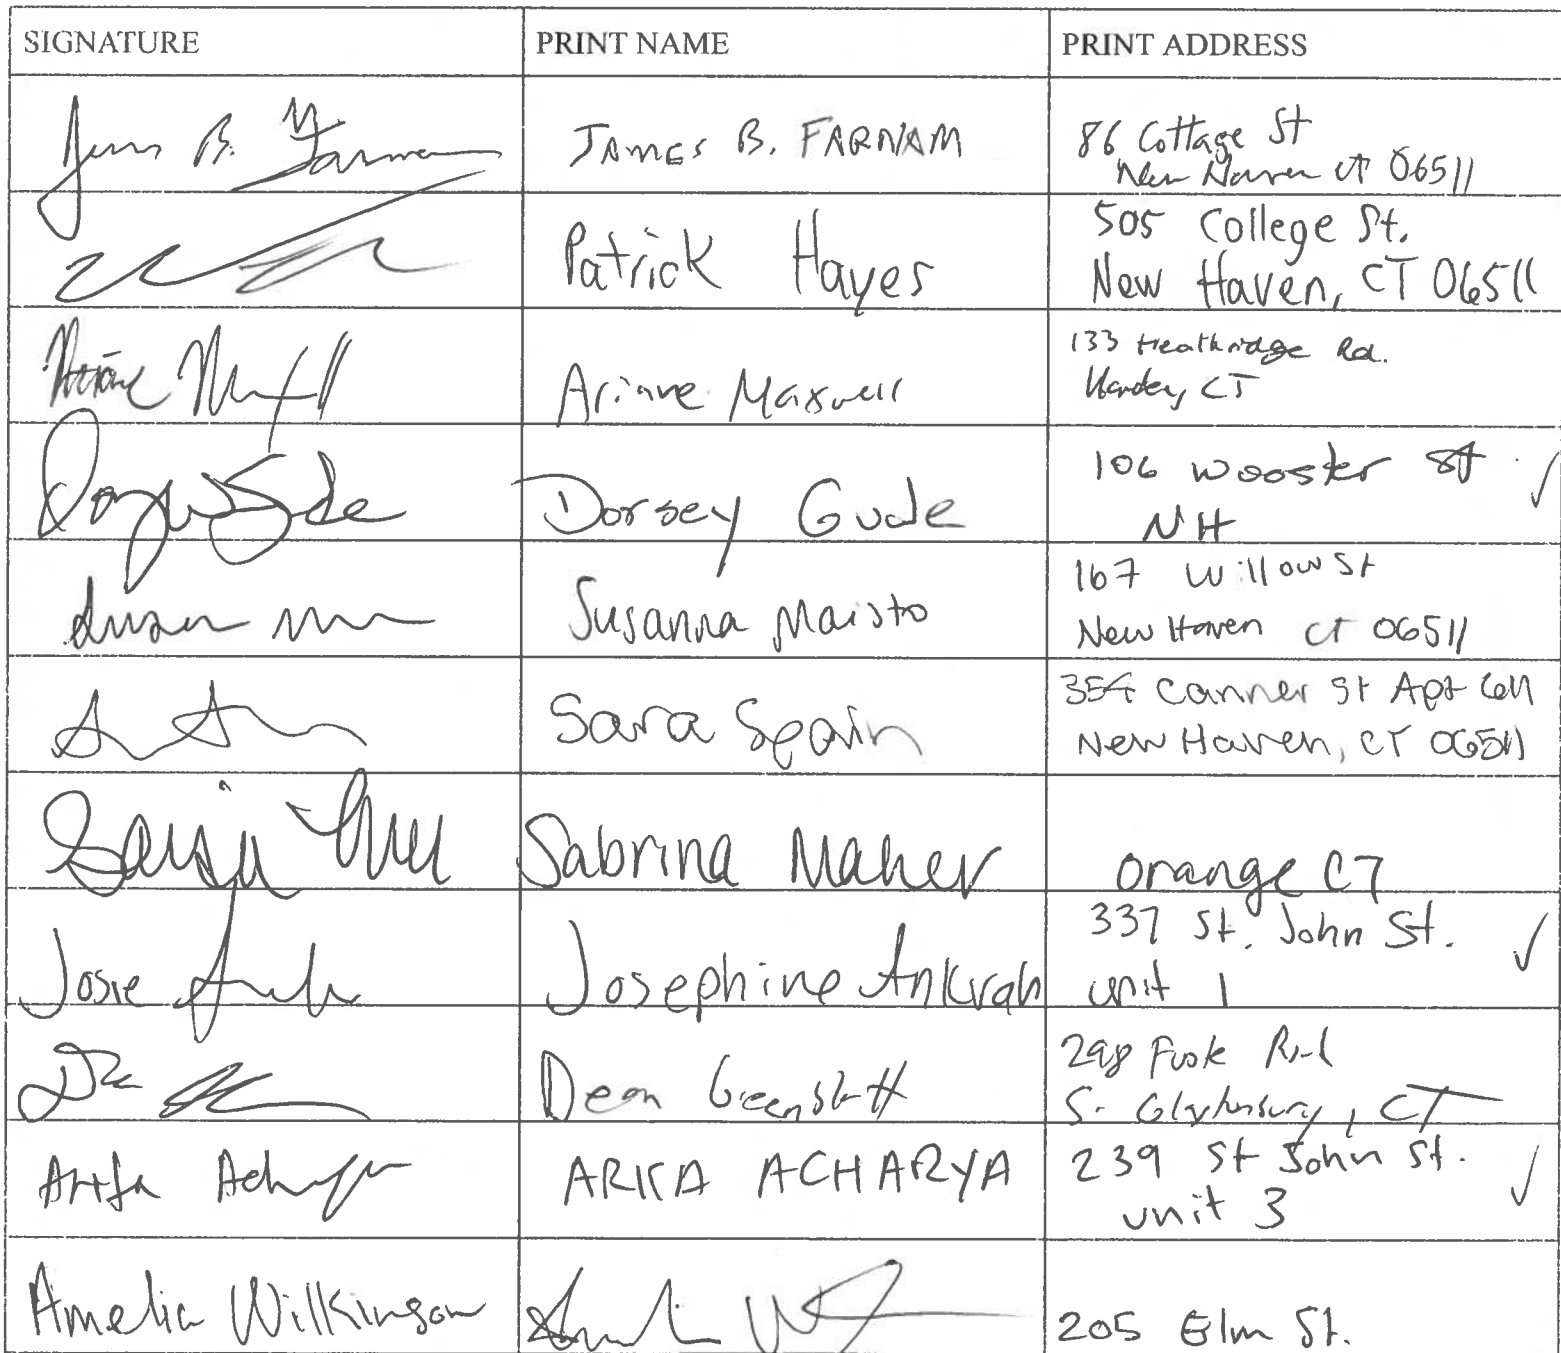 SIGNATURE PRINT NAME PRINT ADDRESS
James B. Farnam JAMES B. FARNAM 86 Cottage St
New Haven CT 06511
Patrick Hayes 505 College St.
New Haven, CT 06511
Ariane Maxwell 133 Heathridge Rd.
Hamden, CT
Dorsey Gude 106 Wooster St
NH
Susanna Maisto 167 Willow St
New Haven CT 06511
Sara Spain 354 Canner St Apt
New Haven, CT 06511
Sabrina Maher Orange CT
Josie Josephine Ankrah 337 St. John St.
unit 1
Dean Road
S. Glastonbury, CT
Acharya ACHARYA 239 St John St.
unit 3
Amelia Wilkinson 205 Elm St.